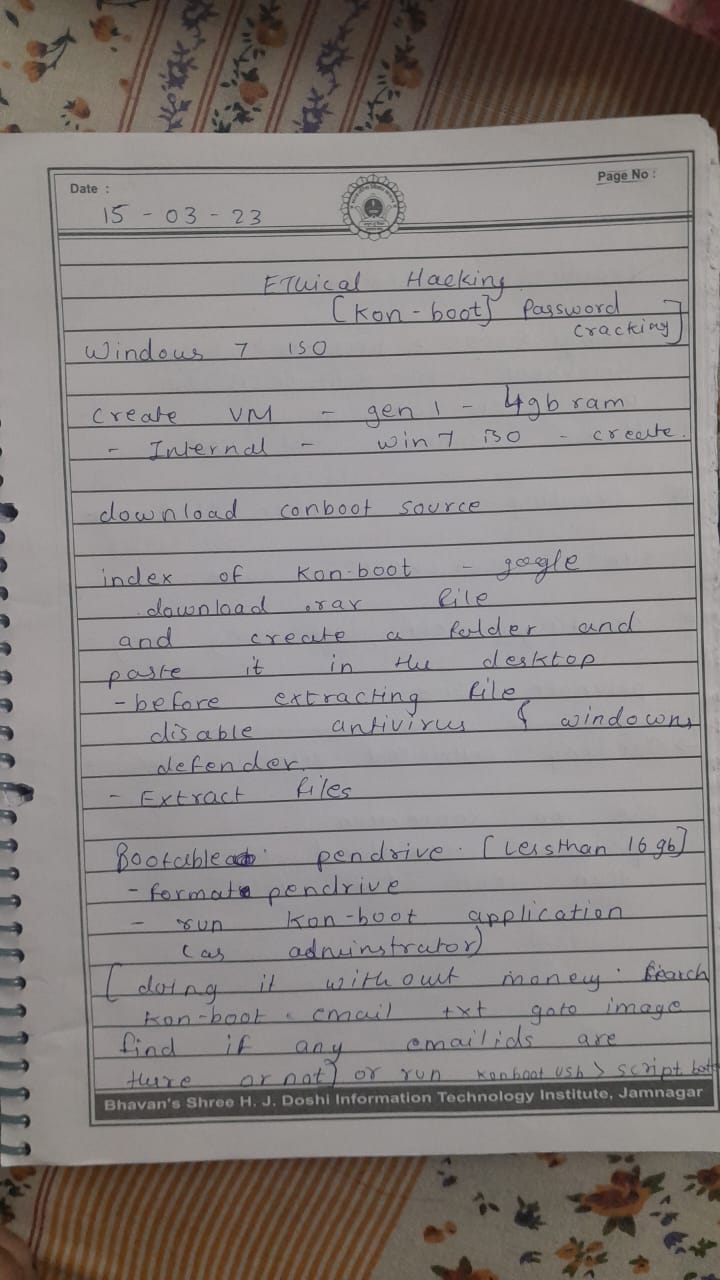 Date :
Page No :
15 - 03 - 23
Ethical Hacking
[Kon-boot] Password
cracking]
Windows 7 ISO
create VM - gen 1 - 4gb ram
- Internal - win 7 ISO - create.
download conboot source
index of Kon-boot - google
download .rar file
and create a folder and
paste it in the desktop
- before extracting file
disable antivirus & windowns
defender
- Extract files
Bootable pendrive. [Lessthan 16 gb]
- format pendrive
- run Kon-boot application
(as adminstrator)
[doing it without money. Search
Kon-boot email txt goto image
find if any emailids are
there or not] or run konboot usb > script. bat
Bhavan's Shree H. J. Doshi Information Technology Institute, Jamnagar